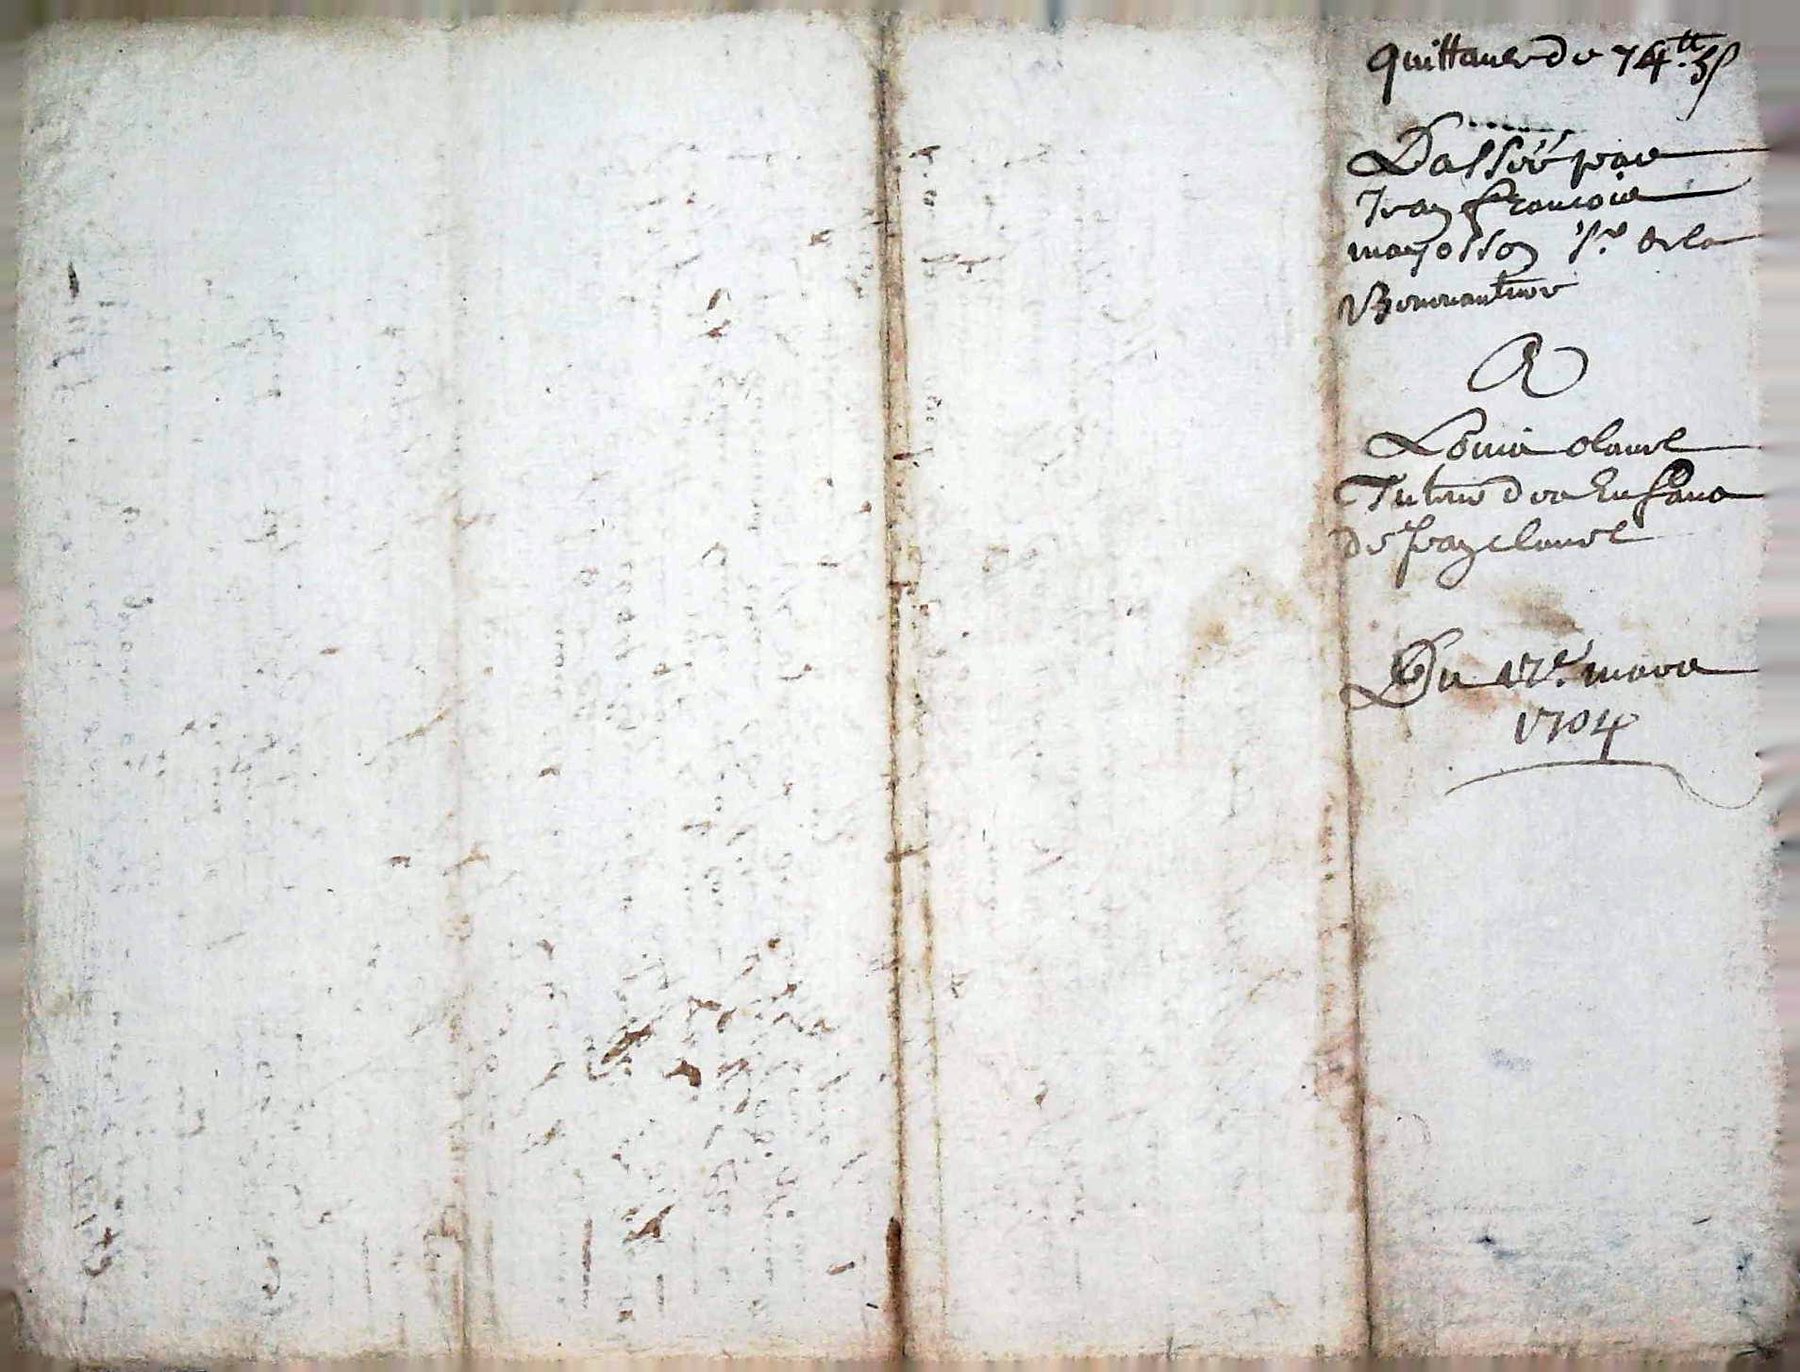 Quittance de 74.tt 5s
Passée par
Jean francois
mayosson Sr. de la
Bonnauture
A
Louis clauel
Tuteur des Enfans
de Jean clauel
Du 17e. mars
1704